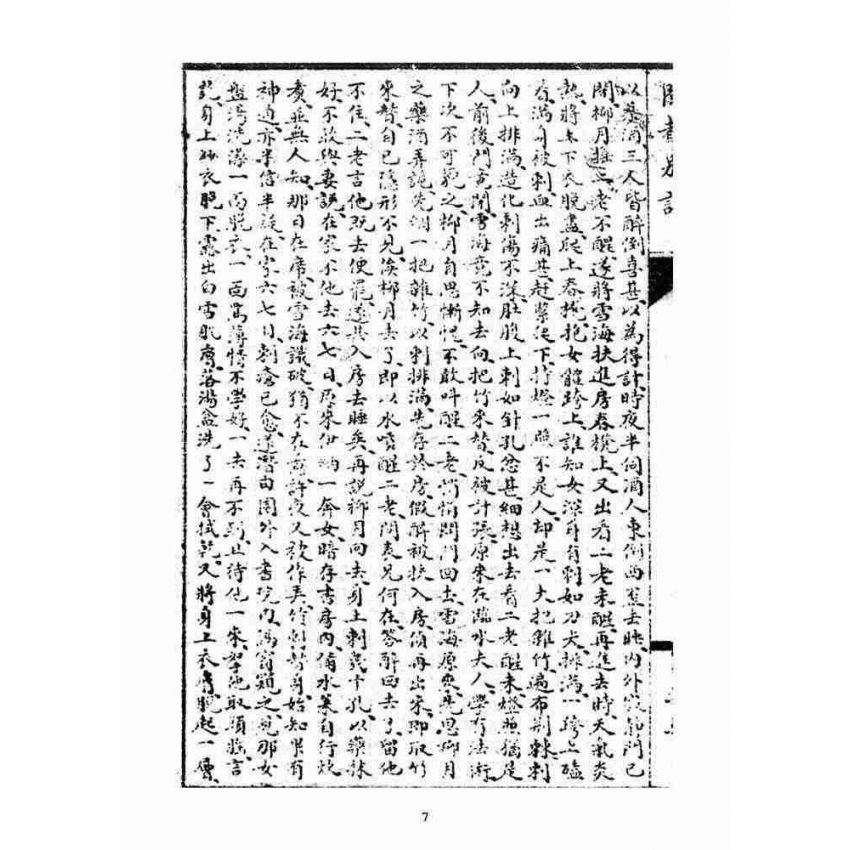 閩書異誌
以藥酒三人皆醉倒喜甚以為得計時夜半伺酒人東倒西歪去睡內外俱靜門已
閉柳月推二老不醒遂將雪海扶進房春櫈上又出看二老未醒再進去時天氣炎
熱將上下衣脫盡爬上春櫈抱女體跨上誰知女深身有刺如刀尖排滿一跨上磕
着滿身被刺血出痛甚赶緊爬下打燈一照不是人却是一大把雜竹遍布荆棘刺
向上排滿造化刺傷不深肚腹上刺如針孔忿甚細想出去看二老醒未燈煎猶是
人前後門竟閉雪海竟不知去向把竹來替反被計張原來在臨水夫人學有法術
下次不可犯之柳月自思慚愧不敢叫醒二老悄悄開門回去雪海原要先思柳月
之藥酒弄詭先綑一把雜竹以刺排滿先存於房假醉被扶入房倘再出來即取竹
來替自己隱形不見俟柳月去了即以水噴醒二老問表兄何在答醉回去了留他
不住二老言他既去便罷遂共入房去睡矣再說柳月回去身上刺幾千孔以藥抹
好不敢與妻說在家不他去六七日原來伊綯一奔女暗存書房內備水菜自行炊
煮並無人知那日在席被雪海識破猶不在意許夜又欲作弄竹刺替身始知果有
神迫亦半信半疑在家六七日刺瘡已愈遂潛由園外入書院內隔窗窺之見那女
盤湯洗澡一面脫衣一面罵薄情不學好一去再不到且待他一來拏他取頭將言
説身上紗衣脫下露出白雪肌膚落湯盆洗了一會拭乾又將身上衣膚脫起一層
7